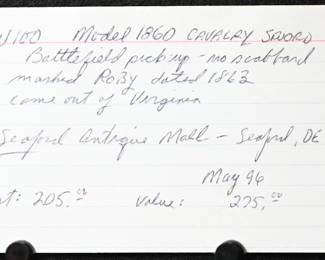 W100 Model 1860 CAVALRY SWORD
Battlefield pick up - no scabbard
marked Roby dated 1863
came out of Virginia
Seaford Antique Mall - Seaford, DE
May 96
t: 205.00 value: 275.00